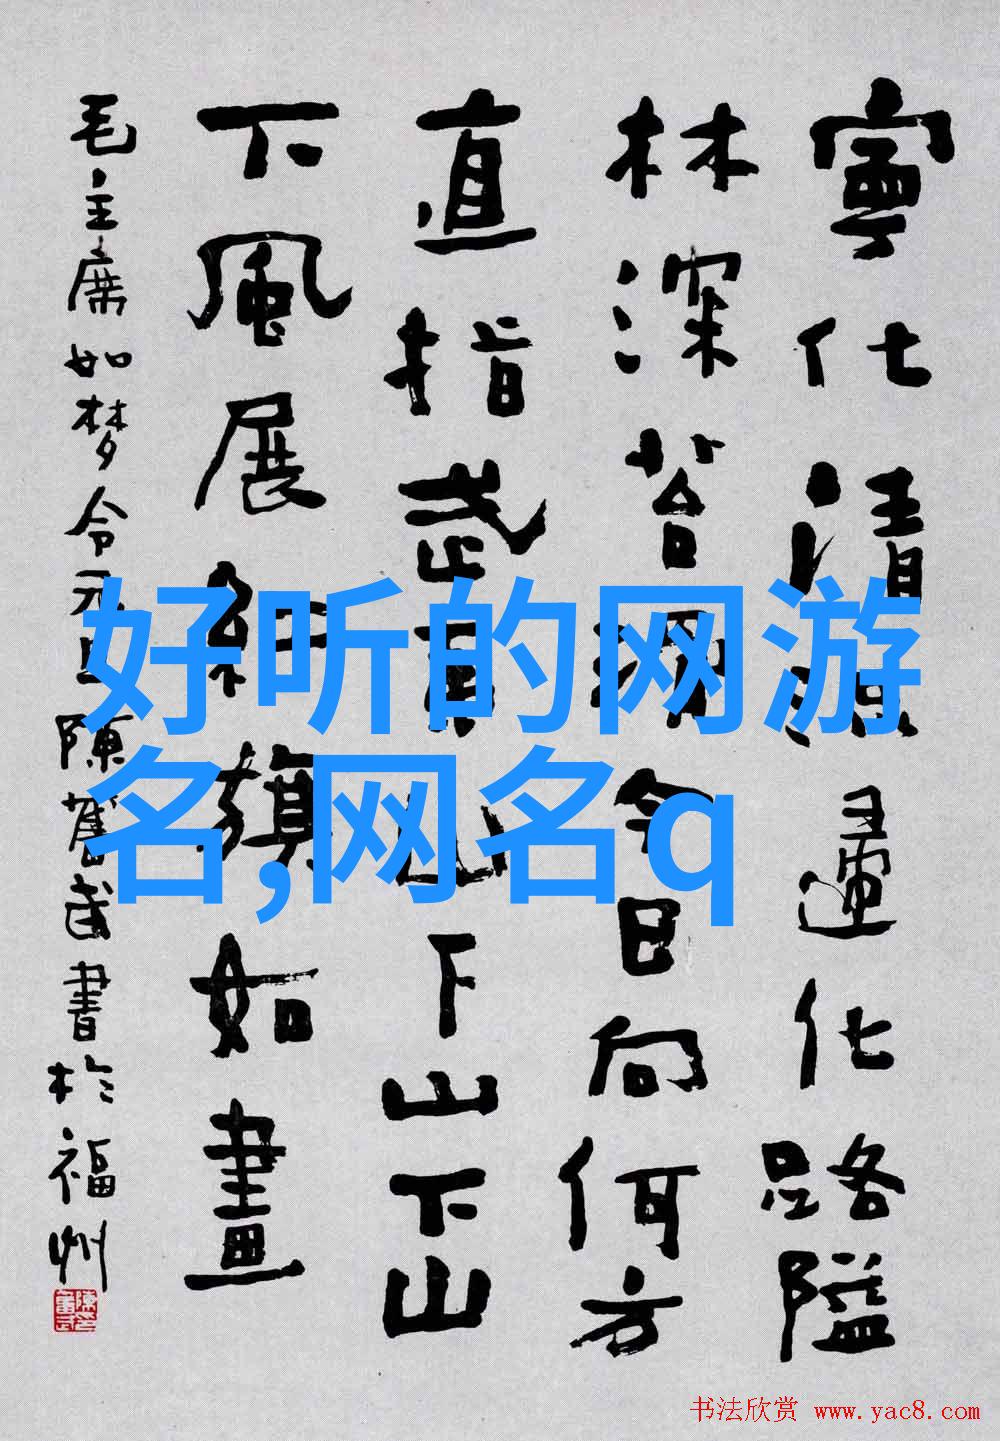 寧化清流歸化路隘
林深苔滑今日向何方
直指武夷山下山下山
下風展紅旗如畫
毛主席如梦令元旦陳奮武書於福州
好听的网游
名,网名q
书法欣赏 www.yac8.com